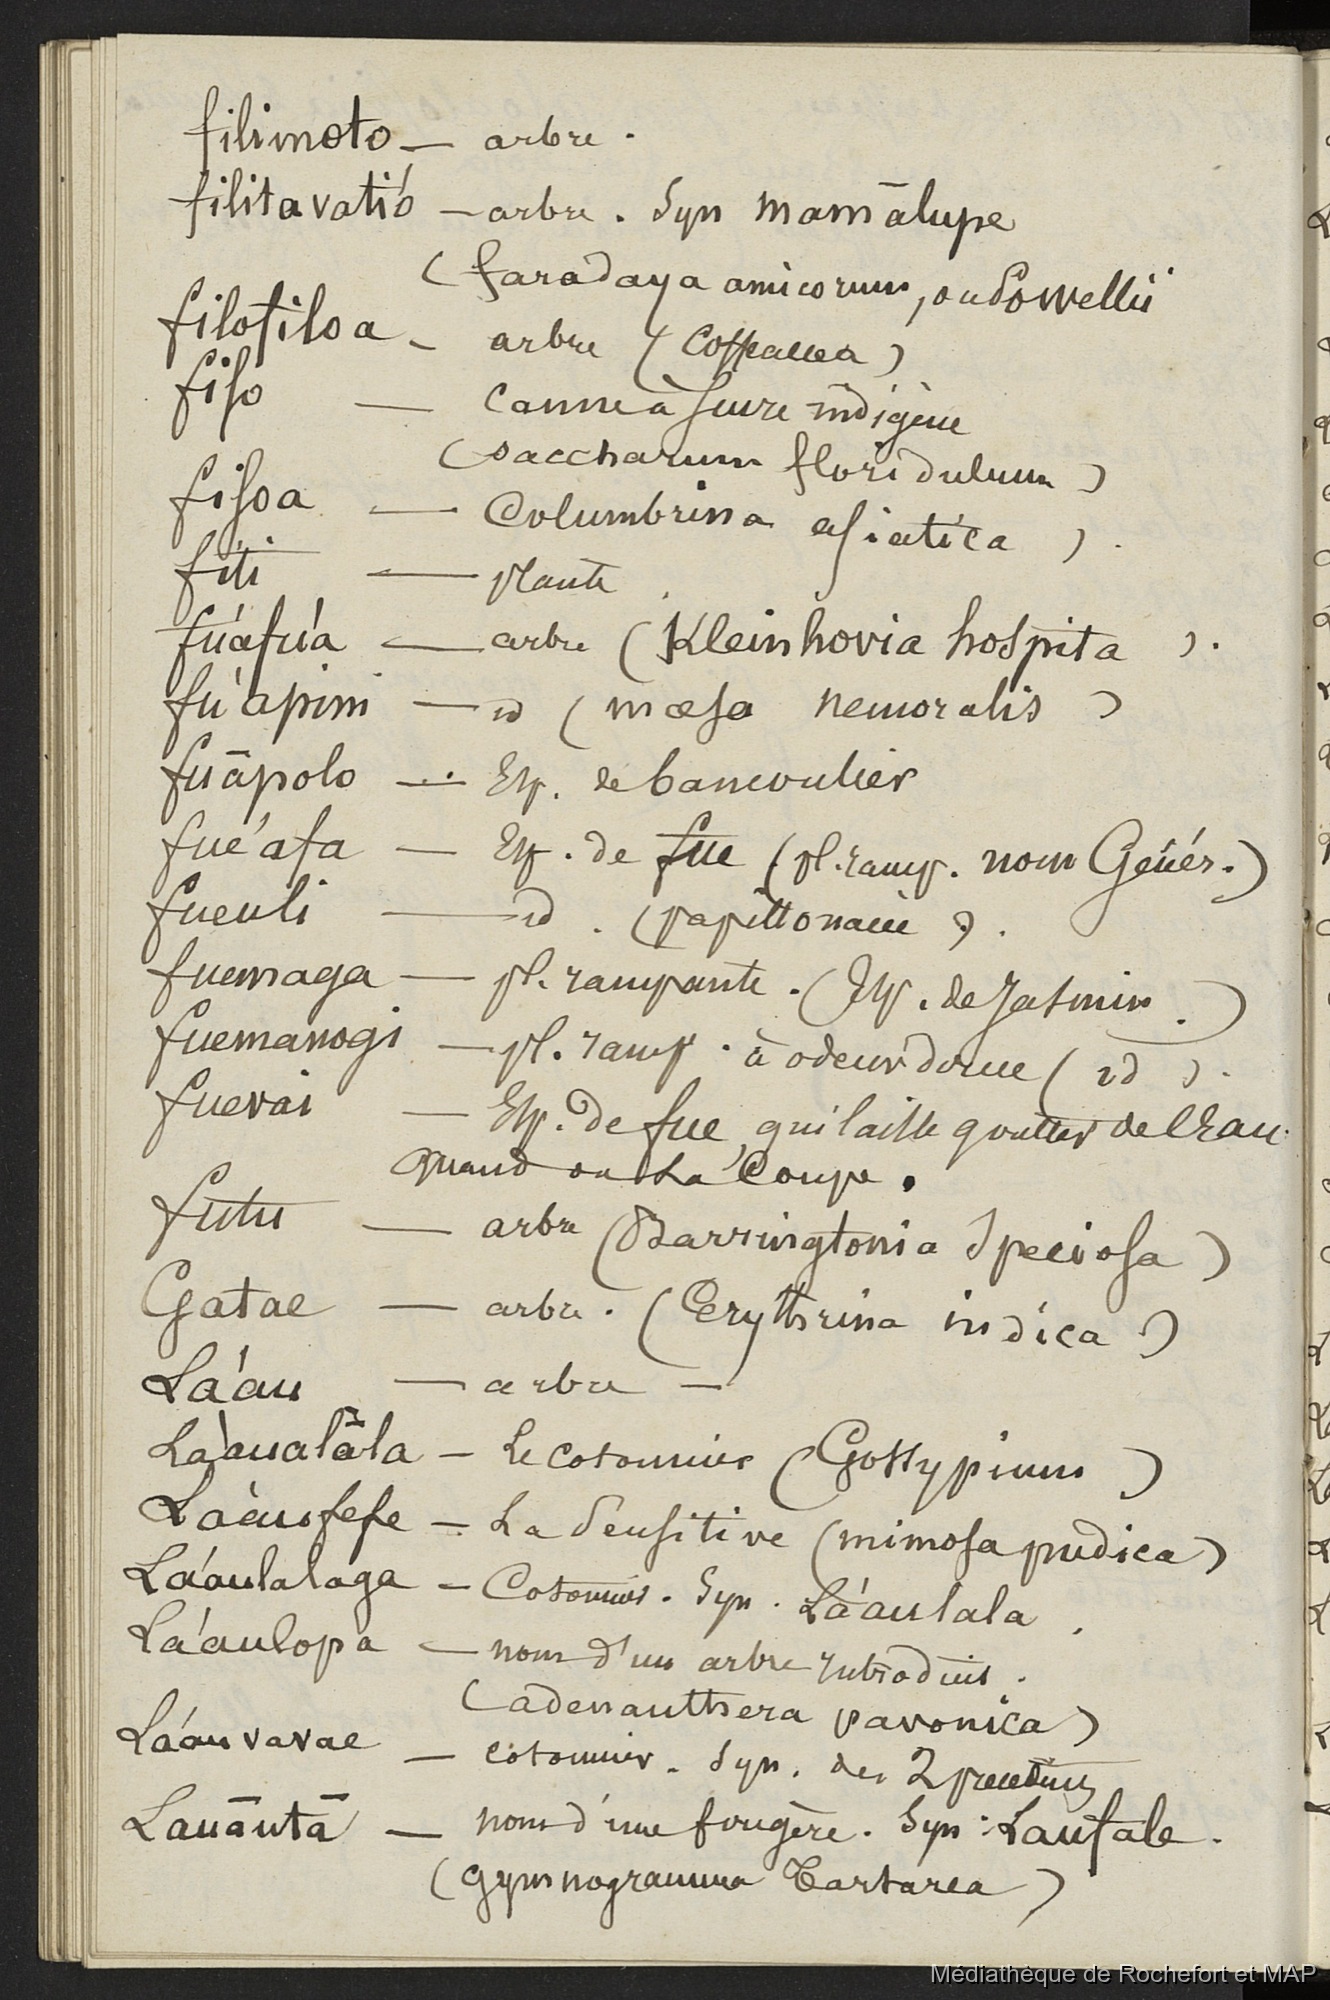 filimoto — arbre.
filitavatió — arbre. Syn mamālupe
(faradaya amicorum, ou Powellii
filofiloa — arbre (Coffeacea)
fiso — canne à sucre indigène
(saccharum floridulum)
fisoa — Columbrina asiatica).
fiti — plante.
fúafúa — arbre (Kleinhovia hospita).
fu'apini — id (mæsa nemoralis)
fuāpolo — Esp. de bancoulier
fue'afa — Esp. de fue (pl. ramp. nom Génér.)
fueuli — id. (papillonacée).
fuemaga — pl. rampante. (Esp. de Jasmin.)
fuemanogi — pl. ramp. à odeur douce (id).
fuevai — Esp. de fue, qui laisse goutter de l'Eau
quand on la coupe.
futu — arbre (Barringtonia Speciosa)
Gatae — arbre. (Erythrina indica)
Láau — arbre —
Láaualāla — Le cotonnier (Gossypium)
Láaufefe — La Sensitive (mimosa pudica)
Láaulalaga — Cotonnier. Syn. Láaulala.
Láaulopa — nom d'un arbre introduit.
(adenanthera pavonica)
Láauvavae — cotonnier. Syn. des 2 précédents
Lauāutā — nom d'une fougère. Syn: Laufale.
(gymnogramma Tartarea)
Médiathèque de Rochefort et MAP